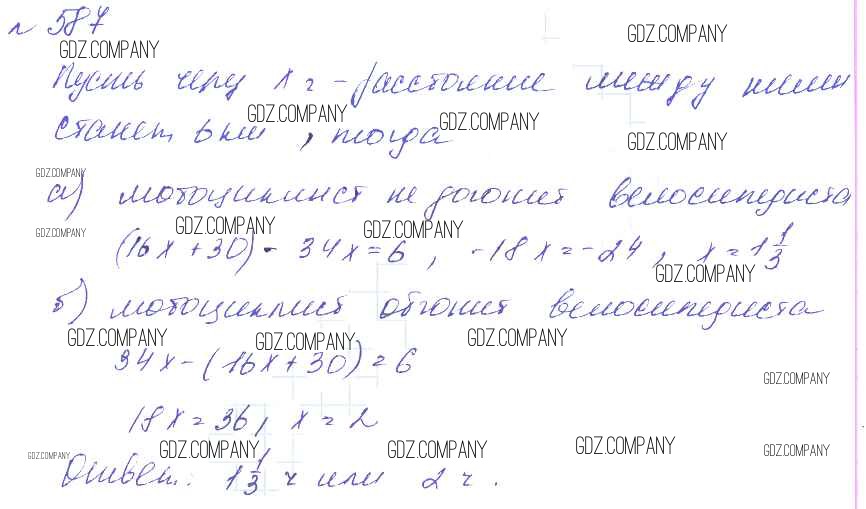 № 587
GDZ.COMPANY GDZ.COMPANY
Пусть через x ч – расстояние между ними
GDZ.COMPANY GDZ.COMPANY
станет 6 км, тогда GDZ.COMPANY
GDZ.COMPANY
а) мотоциклист не догонит велосипедиста
GDZ.COMPANY GDZ.COMPANY GDZ.COMPANY
(16x + 30) - 34x = 6, -18x = -24, x = 1 1/3
GDZ.COMPANY
б) мотоциклист обгонит велосипедиста
GDZ.COMPANY GDZ.COMPANY GDZ.COMPANY
34x - (16x + 30) = 6
GDZ.COMPANY
18x = 36, x = 2
GDZ.COMPANY GDZ.COMPANY GDZ.COMPANY GDZ.COMPANY GDZ.COMPANY
Ответ: 1 1/3 ч или 2 ч.